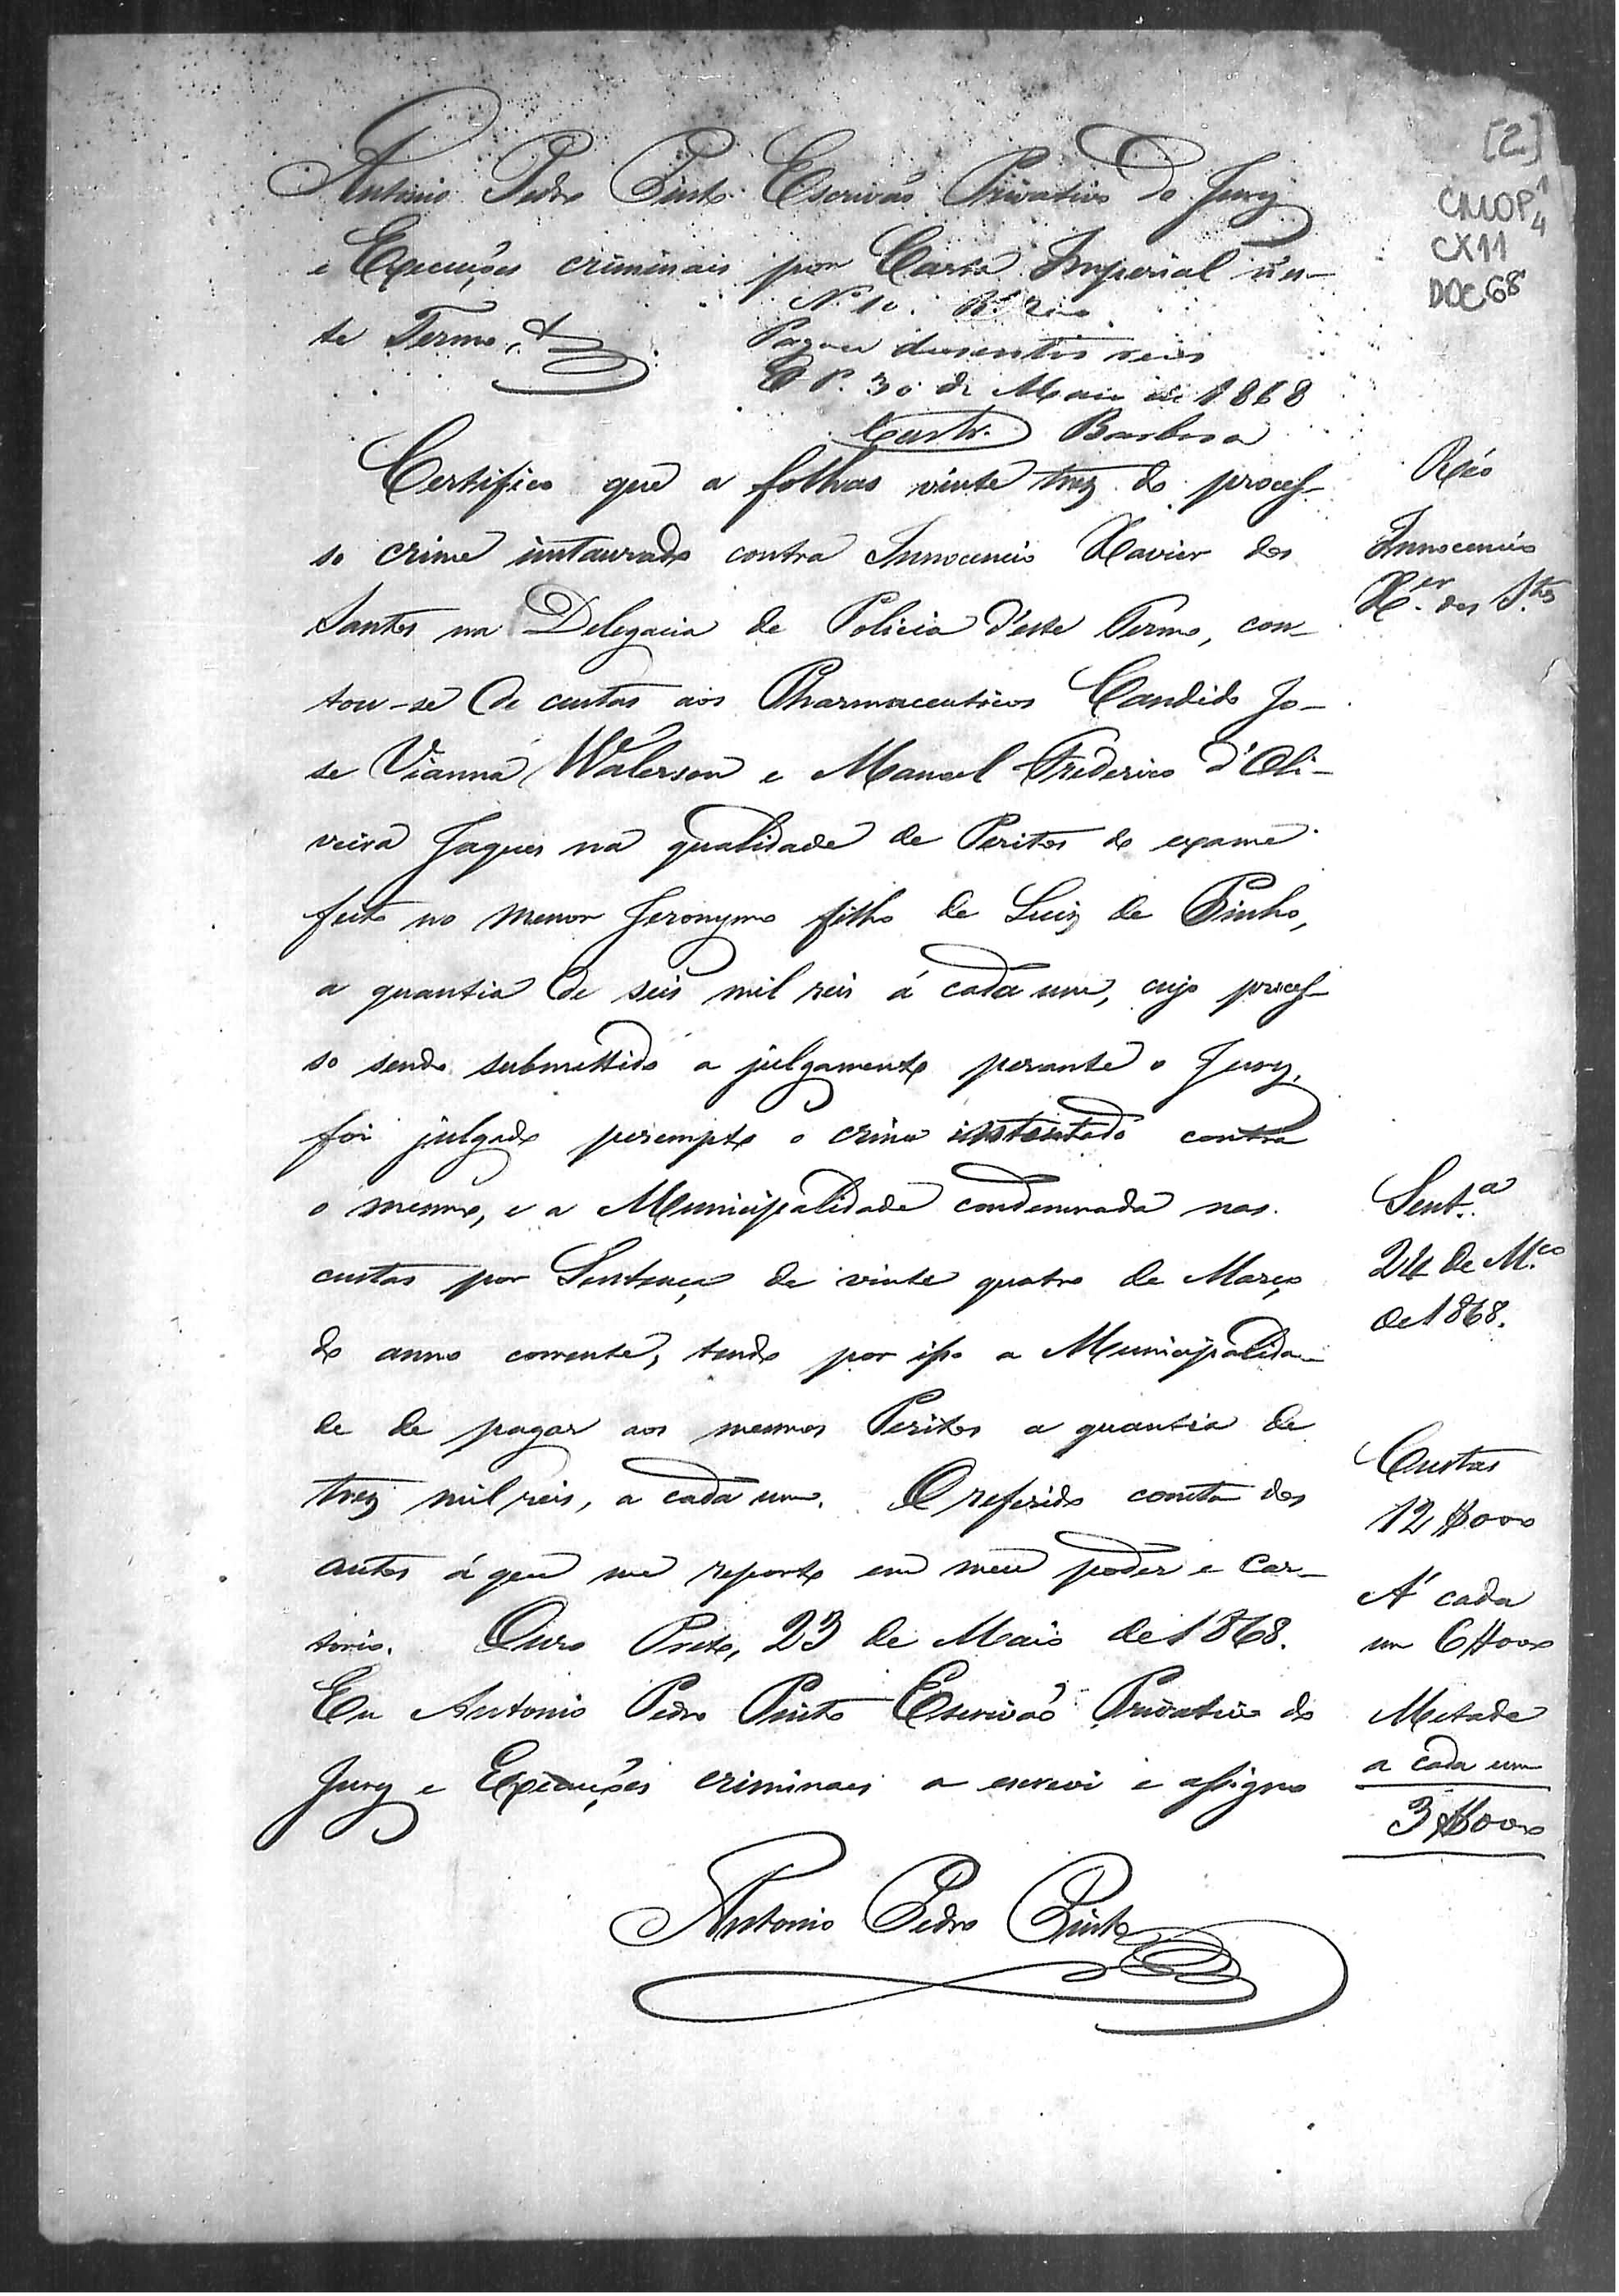 [2]
CMOP 1/4
CX11
DOC 68
Antonio Pedro Pinto Escrivão Privativo do Jury
e Execuções criminais por Carta Imperial n'es-
te Termo, &
Nº 10. Rs 200
Pagou dusentos reis
O P. 30 de Maio de 1868
Castro Barbosa
Certifico que a folhas vinte trez do proces-
so crime intaurado contra Innocencio Xavier dos
Santos na Delegacia de Policia d'este Termo, con-
tou-se de custas aos Pharmaceuticos Candido Jo-
se Vianna Walerson e Manoel Frederico d'Oli-
veira Jaques na qualidade de Peritos do exame
feito no menor Jeronymo filho de Luiz de Pinho,
a quantia de seis mil reis á cada um, cujo proces-
so sendo submettido a julgamento perante o Jury,
foi julgado perempto o crime intentado contra
o mesmo, e a Municipalidade condemnada nas
custas por Sentença de vinte quatro de Março
do anno corrente, tendo por isso a Municipalida-
de de pagar aos mesmos Peritos a quantia de
trez mil reis, a cada um. O referido consta dos
autos á que me reporto em meu poder e Car-
torio. Ouro Preto, 23 de Maio de 1868.
Eu Antonio Pedro Pinto Escrivão Privativo do
Jury e Execuções criminaes a escrevi e assigno
Antonio Pedro Pinto
Réo
Innocencio
X.er dos S.tos
Sent.a
24 de M.ço
de 1868.
Custas
12$000
A' cada
um 6$000
Metade
a cada um
3$000